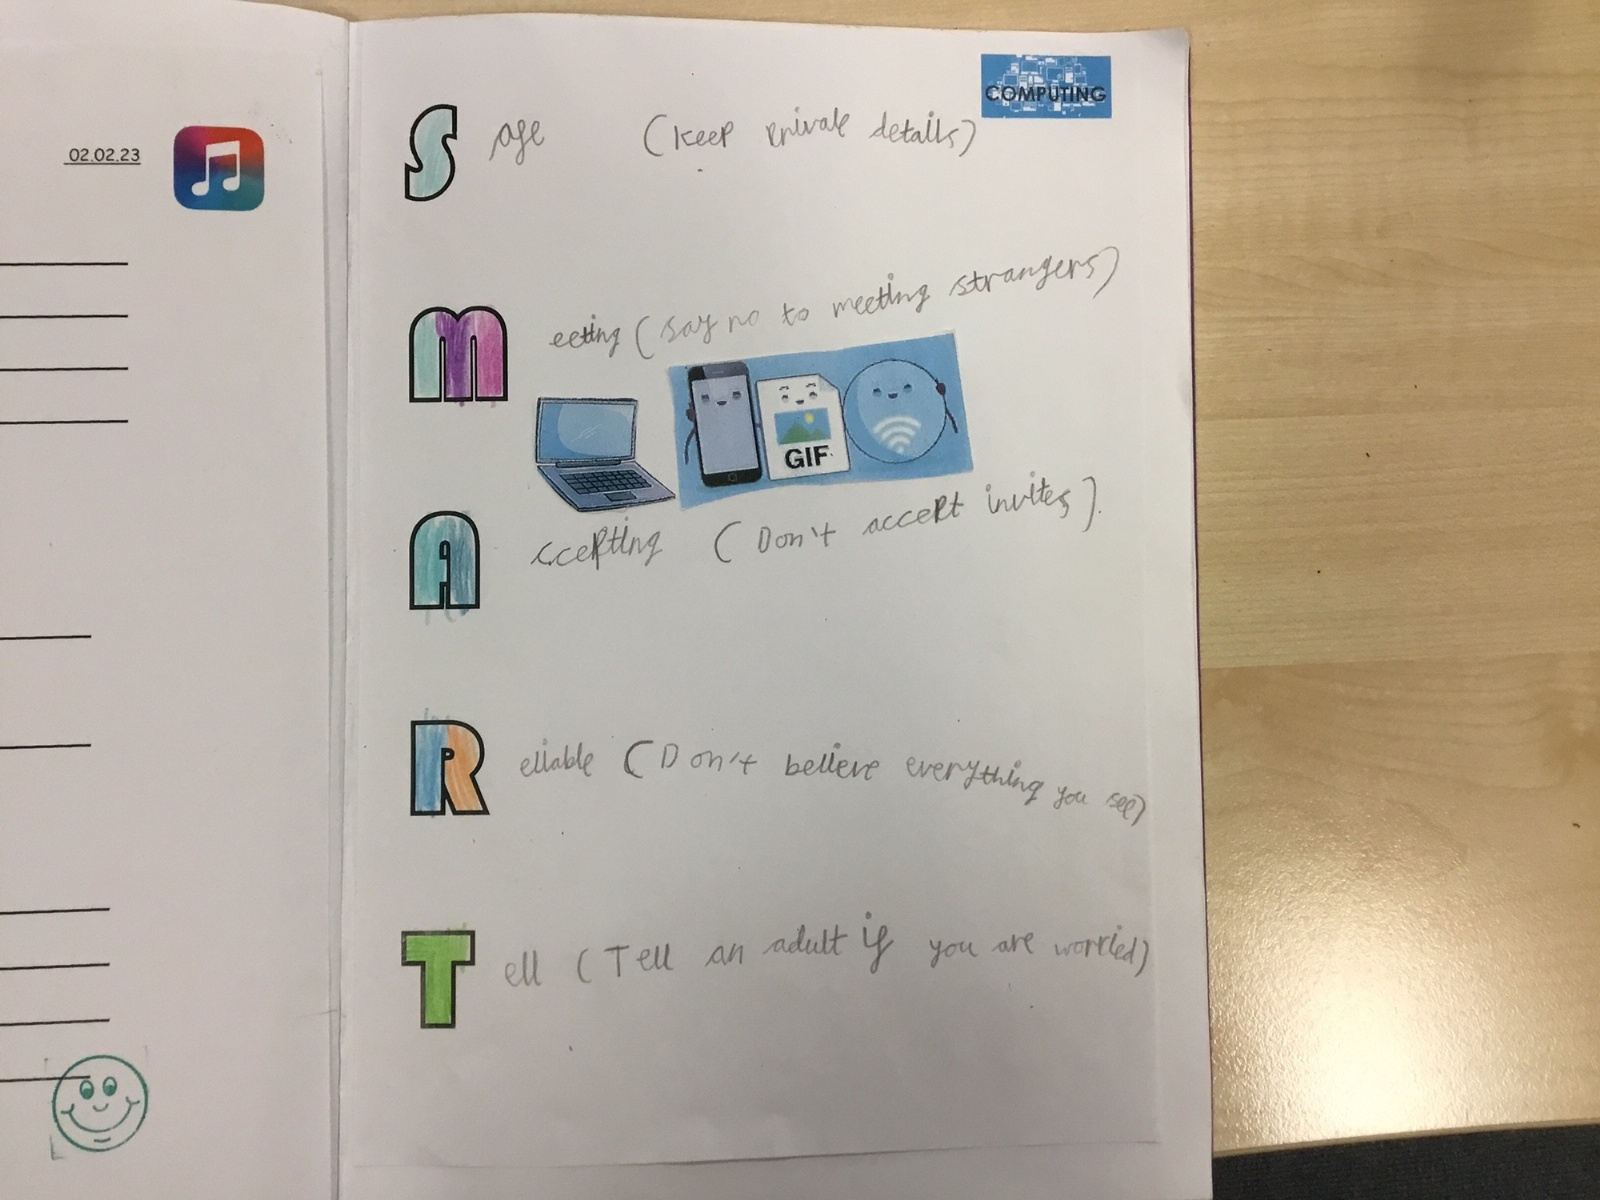 02.02.23
COMPUTING
Safe (Keep private details)
Meeting (Say no to meeting strangers)
GIF
Accepting (Don't accept invites).
Reliable (Don't believe everything you see)
Tell (Tell an adult if you are worried)